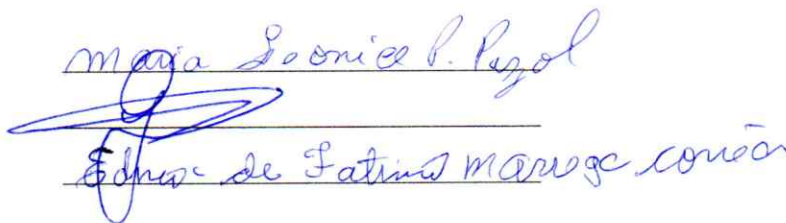 Maria Leonice P. Pazol
Edneia de Fatima Maroga Corrêa